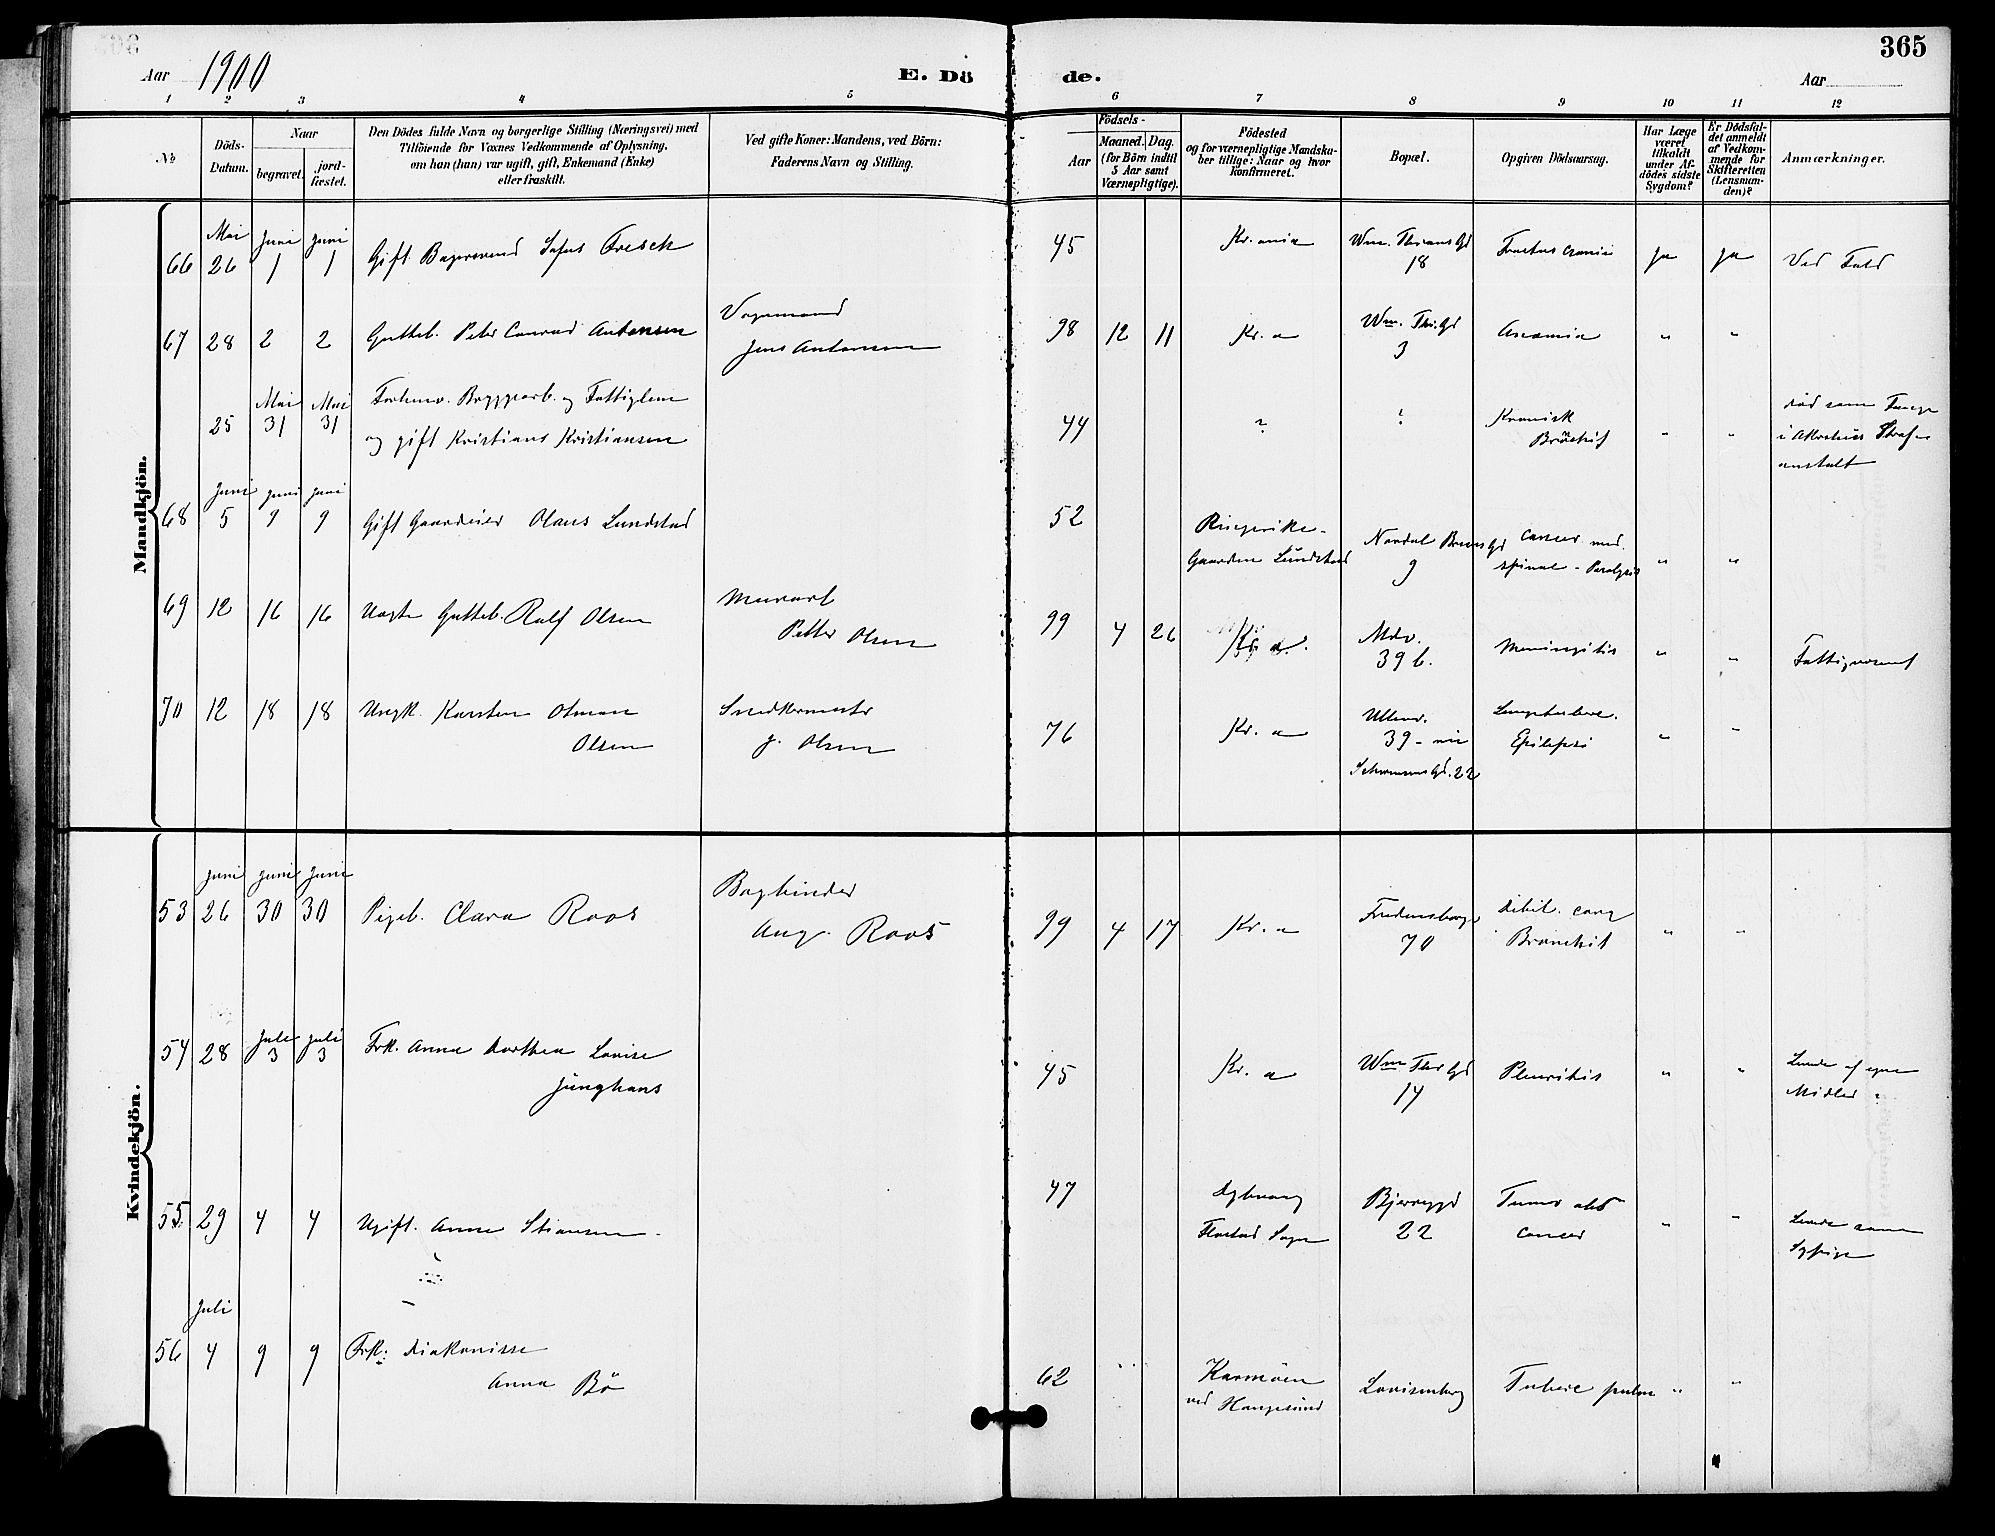 Aar 1900
E. Dö de.
365
Aar
1 2 3 4 5 6 7 8 9 10 11 12
No
Döds-Datum.
Naar
begravet.
jordfæstet.
Den Dödes fulde Navn og borgerlige Stilling (Næringsvei) med
Tilföiende for Voxnes Vedkommende af Oplysning,
om han (hun) var ugift, gift, Enkemand (Enke)
eller fraskilt.
Ved gifte Koner: Mandens, ved Börn:
Faderens Navn og Stilling.
Födsels-
Aar
Maaned.
Dag.
(for Börn indtil
5 Aar samt
Værnepligtige).
Födested
og for værnepligtige Mandskaber tillige: Naar og hvor
konfirmeret.
Bopæl.
Opgiven Dödsaarsag.
Har Læge
været
tilkaldt
under Afdödes sidste
Sygdom?
Er Dödsfaldet anmeldt
af Vedkommende for
Skifteretten
(Lensmanden)?
Anmærkninger.
Mandkjön.
Mai Juni Juni
66 26 1 1 Gift Sofus Fresck 45 Kr.ania 18 Ja Ja Ved Fald
67 28 2 2 Gutteb. Peter Conrad Antonsen
Vognmand
Jens Antonsen
98 12 11 Kr. a 3 Anæmia " "
Mai Mai
25 31 31 og Fattiglem
og gift Kristians Kristiansen
44 ? ? Kronisk
" " død som Fange
i Akershus Straf-
anstalt
Juni Juni Juni
68 5 9 9 Gift Gaardeier Olaus Lundstad
52 Ringerike-
Gaarden Lundstad
Nordal Bruns Gd
9
Cancer med.
spinal - Paralysis " "
69 12 16 16 Uægte Gutteb. Rolf Olsen
Murarb
Petter Olsen
99 4 26 Kr. a.
39 b. Meningitis " " Fattigvæsenet
70 12 18 18 Ungk. Karsten Olsen
Snedkermester
J. Olsen
76 Kr. a
Ullev.
39 -
22
Epilepsi " "
Kvindekjön.
Juni Juni Juni
53 26 30 30 Pigeb. Clara Roos
Bogbinder
Aug. Roos
99 4 17 Kr. a
Fredensborgv
70
debil. cong
Bronchit " "
Juli Juli
54 28 3 3 Frk. Anna Dorthea Lovise
Junghans
45 Kr. a
14
Pleuritis " "
Levede af egne
Midler.
55. 29 4 4 Ugift. Anne Stiansen.
47 Dybvaag
Flostad Sogn
Bjerregd
22
Tumor abd
cancer " "
Levede som
Sypige
Juli
56 4 9 9 Frk: Diakonisse
Anna Bö
62 Karmöen
ved Haugesund
Lovisenberg
Tuberc pulm " "